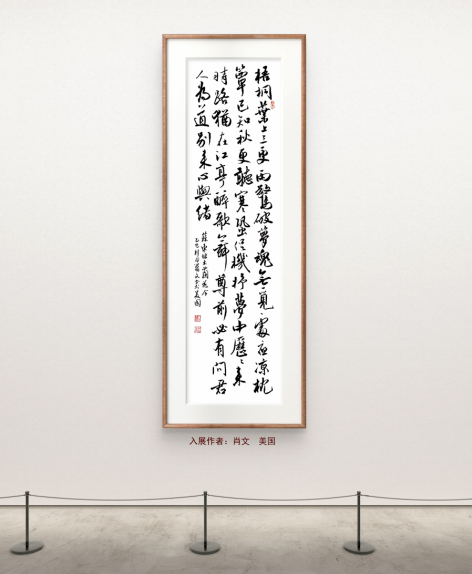 梧桐葉上三更雨驚破夢魂無覓處夜涼枕
簟已知秋更聽寒蛩促機杼夢中歷〻來
時路猶在江亭醉歌舞尊前必有問君
人為道別來心與緒
蘇東坡木蘭花令
乙巳 文 美國
入展作者：肖文 美国